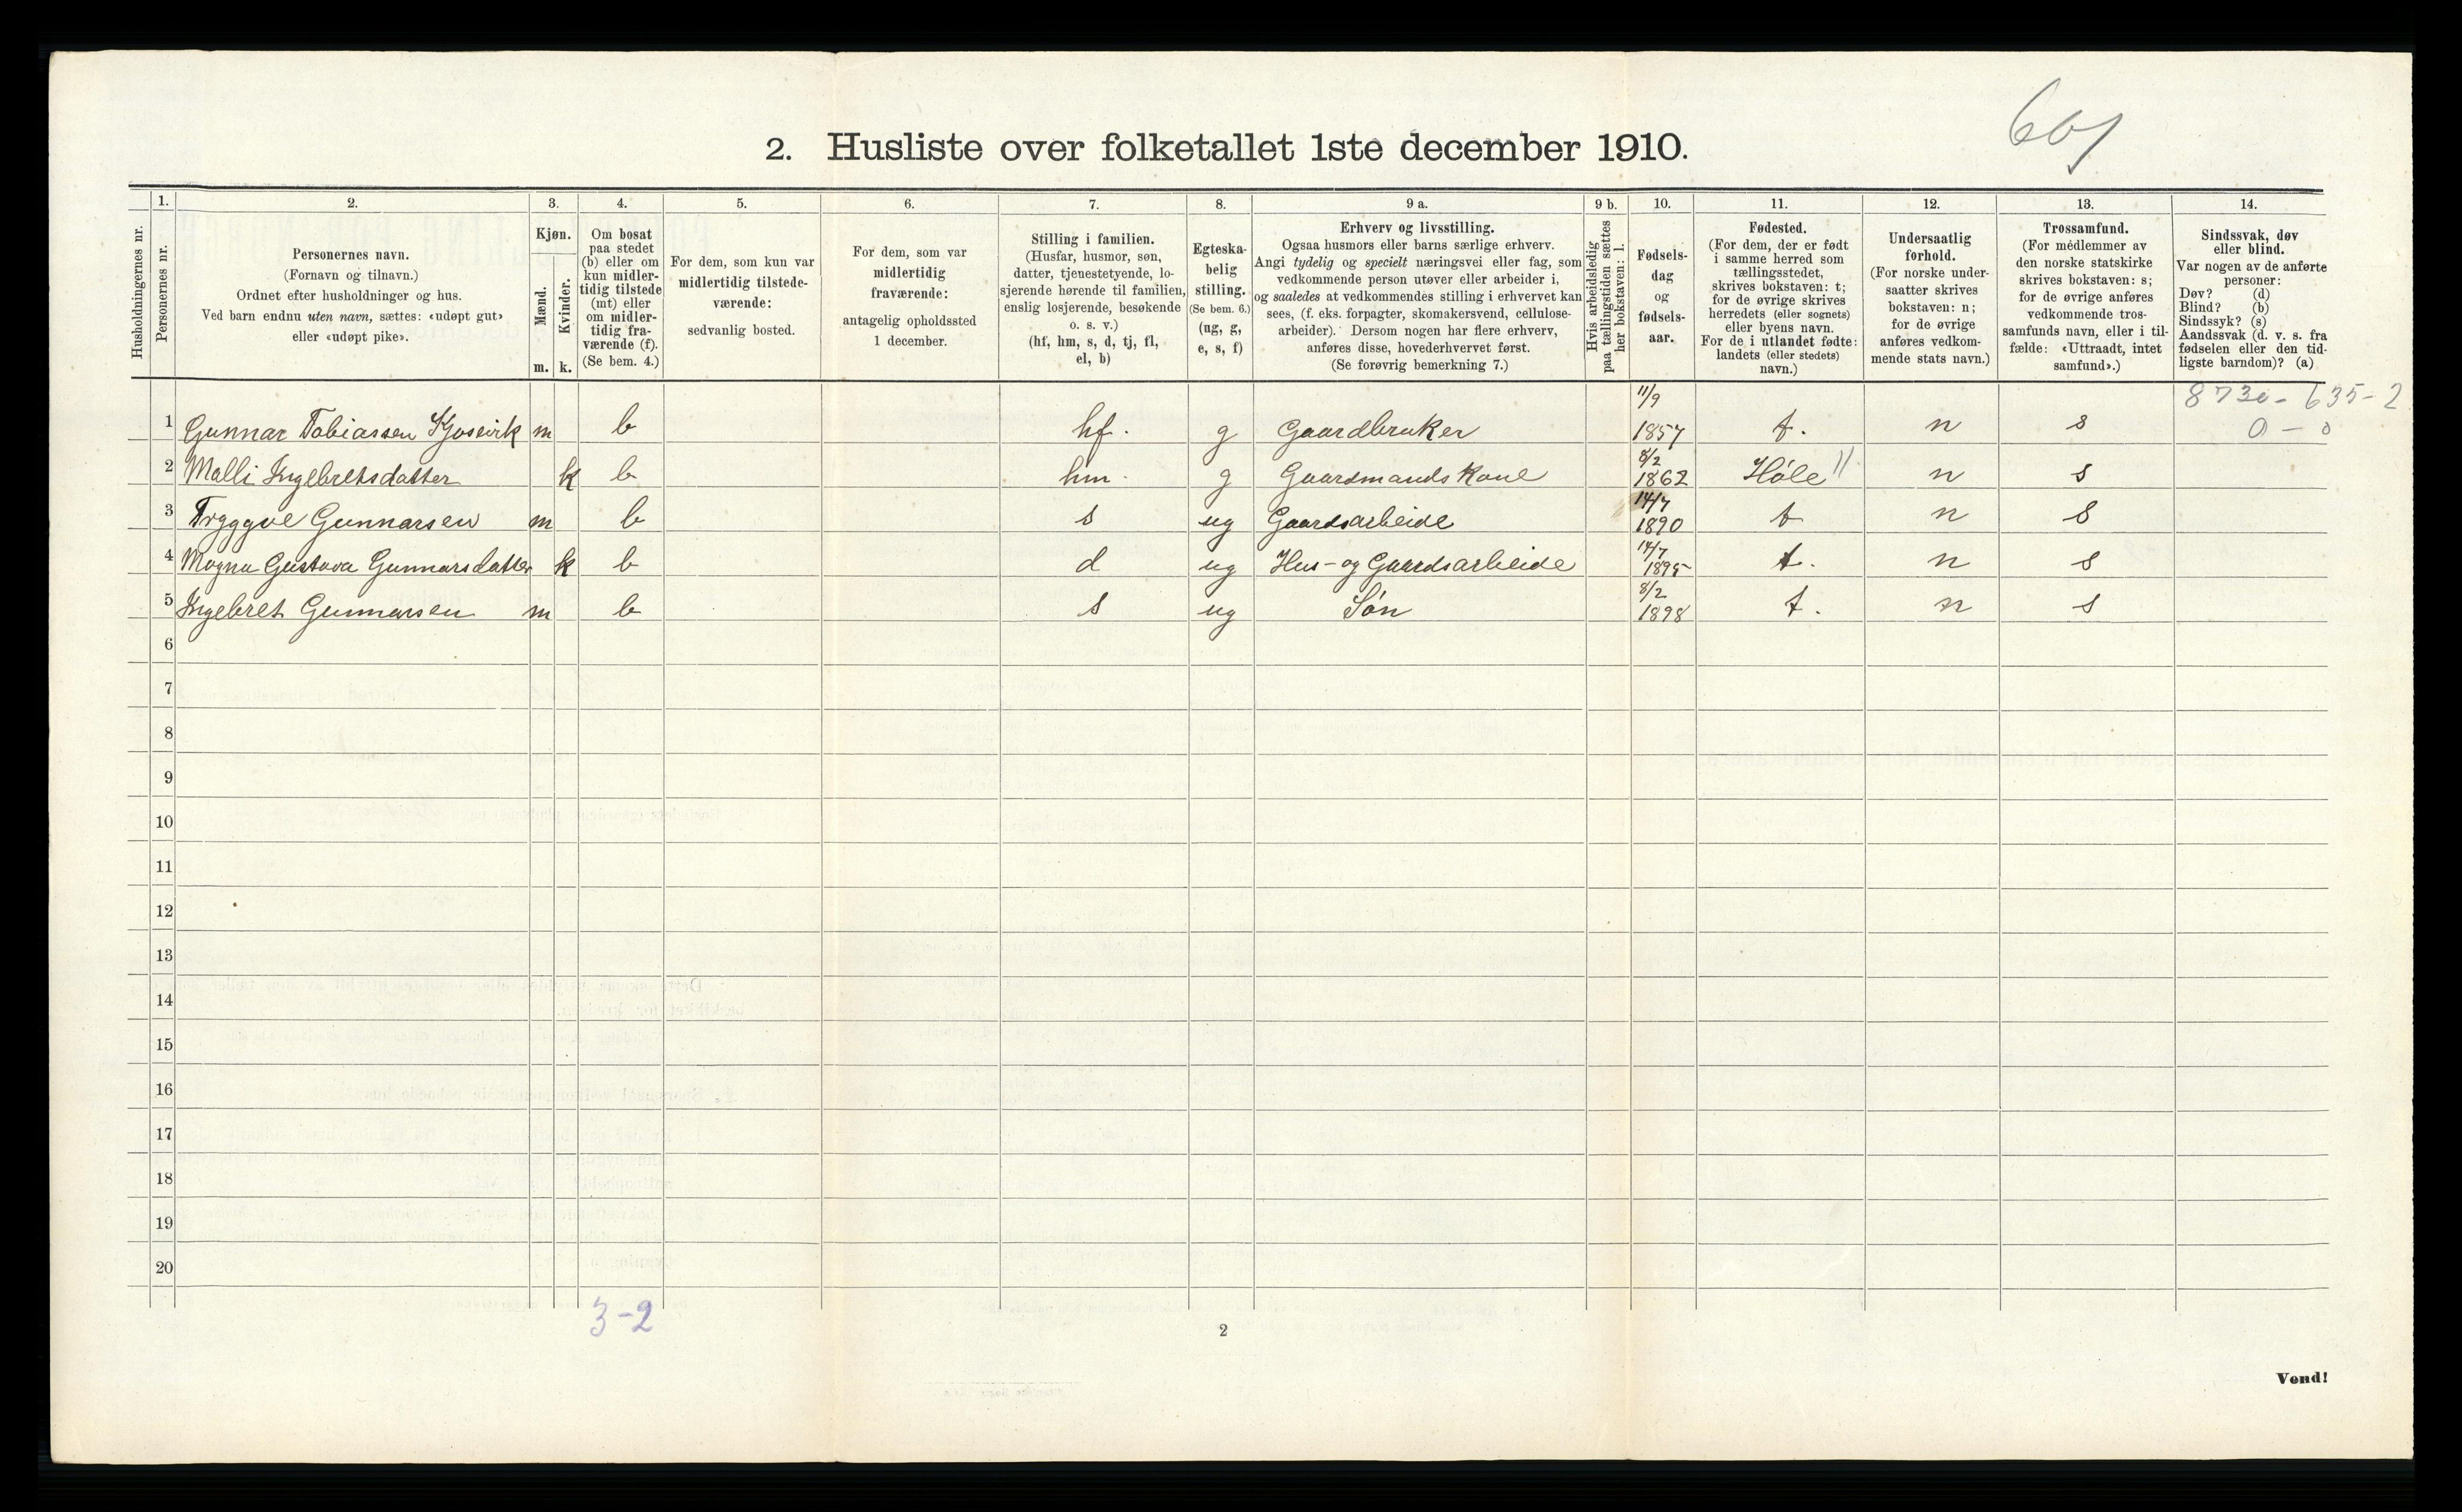 2. Husliste over folketallet 1ste december 1910.
1. 2. 3. 4. 5. 6. 7. 8. 9 a. 9 b. 10. 11. 12. 13. 14.
Husholdningernes nr.
Personernes nr.
Personernes navn.
(Fornavn og tilnavn.)
Ordnet efter husholdninger og hus.
Ved barn endnu uten navn, sættes: «udøpt gut»
eller «udøpt pike».
Kjøn.
Mænd.
Kvinder.
m. k.
Om bosat
paa stedet
(b) eller om
kun midler-
tidig tilstede
(mt) eller
om midler-
tidig fra-
værende (f).
(Se bem. 4.)
For dem, som kun var
midlertidig tilstede-
værende:
sedvanlig bosted.
For dem, som var
midlertidig
fraværende:
antagelig opholdssted
1 december.
Stilling i familien.
(Husfar, husmor, søn,
datter, tjenestetyende, lo-
sjerende hørende til familien,
enslig losjerende, besøkende
o. s. v.)
(hf, hm, s, d, tj, fl,
el, b)
Egteska-
belig
stilling.
(Se bem. 6.)
(ug, g,
e, s, f)
Erhverv og livsstilling.
Ogsaa husmors eller barns særlige erhverv.
Angi tydelig og specielt næringsvei eller fag, som
vedkommende person utøver eller arbeider i,
og saaledes at vedkommendes stilling i erhvervet kan
sees, (f. eks. forpagter, skomakersvend, cellulose-
arbeider). Dersom nogen har flere erhverv,
anføres disse, hovederhvervet først.
(Se forøvrig bemerkning 7.)
Hvis arbeidsledig
paa tællingstiden sættes
her bokstaven: l.
Fødsels-
dag
og
fødsels-
aar.
Fødested.
(For dem, der er født
i samme herred som
tællingsstedet,
skrives bokstaven: t;
for de øvrige skrives
herredets (eller sognets)
eller byens navn.
For de i utlandet fødte:
landets (eller stedets)
navn.)
Undersaatlig
forhold.
(For norske under-
saatter skrives
bokstaven: n;
for de øvrige
anføres vedkom-
mende stats navn.)
Trossamfund.
(For medlemmer av
den norske statskirke
skrives bokstaven: s;
for de øvrige anføres
vedkommende tros-
samfunds navn, eller i til-
fælde: «Uttraadt, intet
samfund».)
Sindssvak, døv
eller blind.
Var nogen av de anførte
personer:
Døv? (d)
Blind? (b)
Sindssyk? (s)
Aandssvak (d. v. s. fra
fødselen eller den tid-
ligste barndom)? (a)
635-2
0 - 0
1 Gunnar Tobiassen m b hf. g Gaardbruker 11/9 1857 t. n s
2 Malli Ingebretsdatter k b hm. g Gaardmands Kone 8/2 1862 Høle n s
3 Tryggve Gunnarsen m b s ug Gaardsarbeide 14/7 1890 t n s
4 Magna Gustava Gunnarsdatter k b d ug Hus- og Gaardsarbeide 14/7 1895 t. n s
5 Ingebret Gunnarsen m b s ug Søn 8/2 1898 t. n s
6
7
8
9
10
11
12
13
14
15
16
17
18
19
20
3-2
2
Vend!